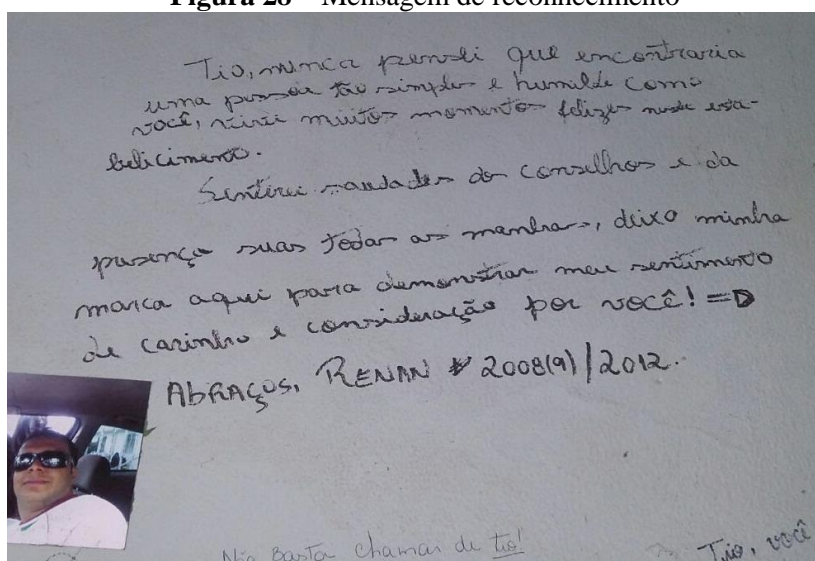 Figura 28 – Mensagem de reconhecimento
Tio, nunca pensei que encontraria
uma pessoa tão simples e humilde como
você, vivi muitos momentos felizes neste esta-
belicimento.
Sentirei saudades dos conselhos e da
presença suas todas as manhas, deixo minha
marca aqui para demonstrar meu sentimento
de carinho e consideração por você! =D
ABRAÇOS, RENAN 2008(9)/2012.
Não Basta chamar de tio!
Tio, você